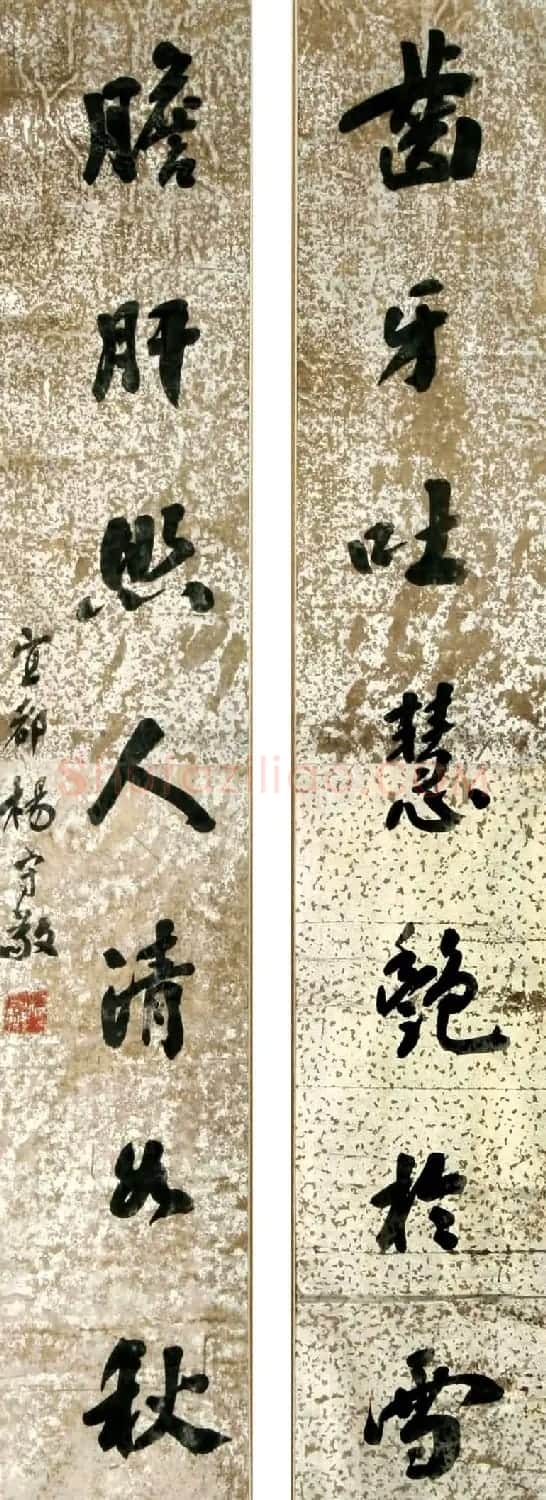 齒牙吐慧艷於雪
膽肝照人清如秋
宜都楊守敬